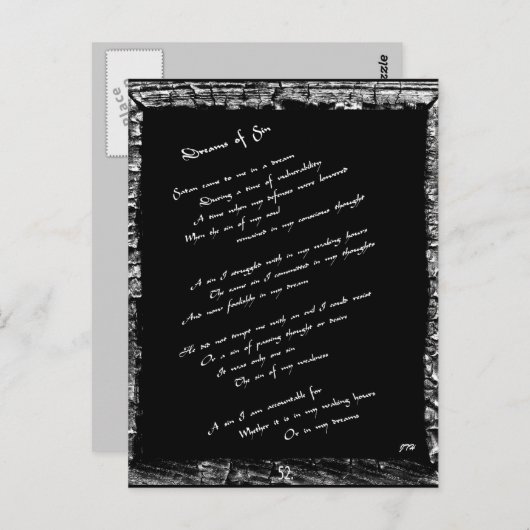 Place
zzle
Dreams of Sin
Satan came to me in a dream
During a time of vulnerability
A time when my defences were lowered
When the sin of my soul
remained in my conscious thought
A sin I struggled with in my waking hours
The same sin I committed in my thoughts
And now foolishly in my dream
He did not tempt me with an evil I could resist
Or a sin of passing thought or desire
It was only one sin
The sin of my weakness
A sin I am accountable for
Whether it is in my waking hours
Or in my dreams
JTH
52.